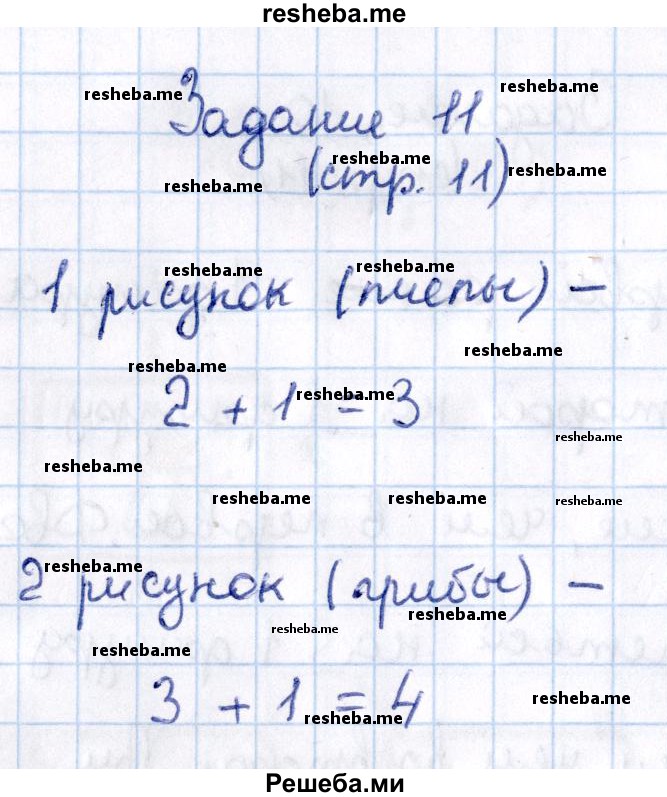 resheba.me
resheba.me resheba.me
Задание 11
resheba.me resheba.me resheba.me
(стр. 11)
resheba.me resheba.me
1 рисунок (пчелы) –
resheba.me
resheba.me resheba.me
2 + 1 = 3
resheba.me
resheba.me
resheba.me resheba.me resheba.me
resheba.me
2 рисунок (грибы) –
resheba.me
resheba.me
resheba.me
3 + 1 = 4
resheba.me
resheba.me
Решеба.ми